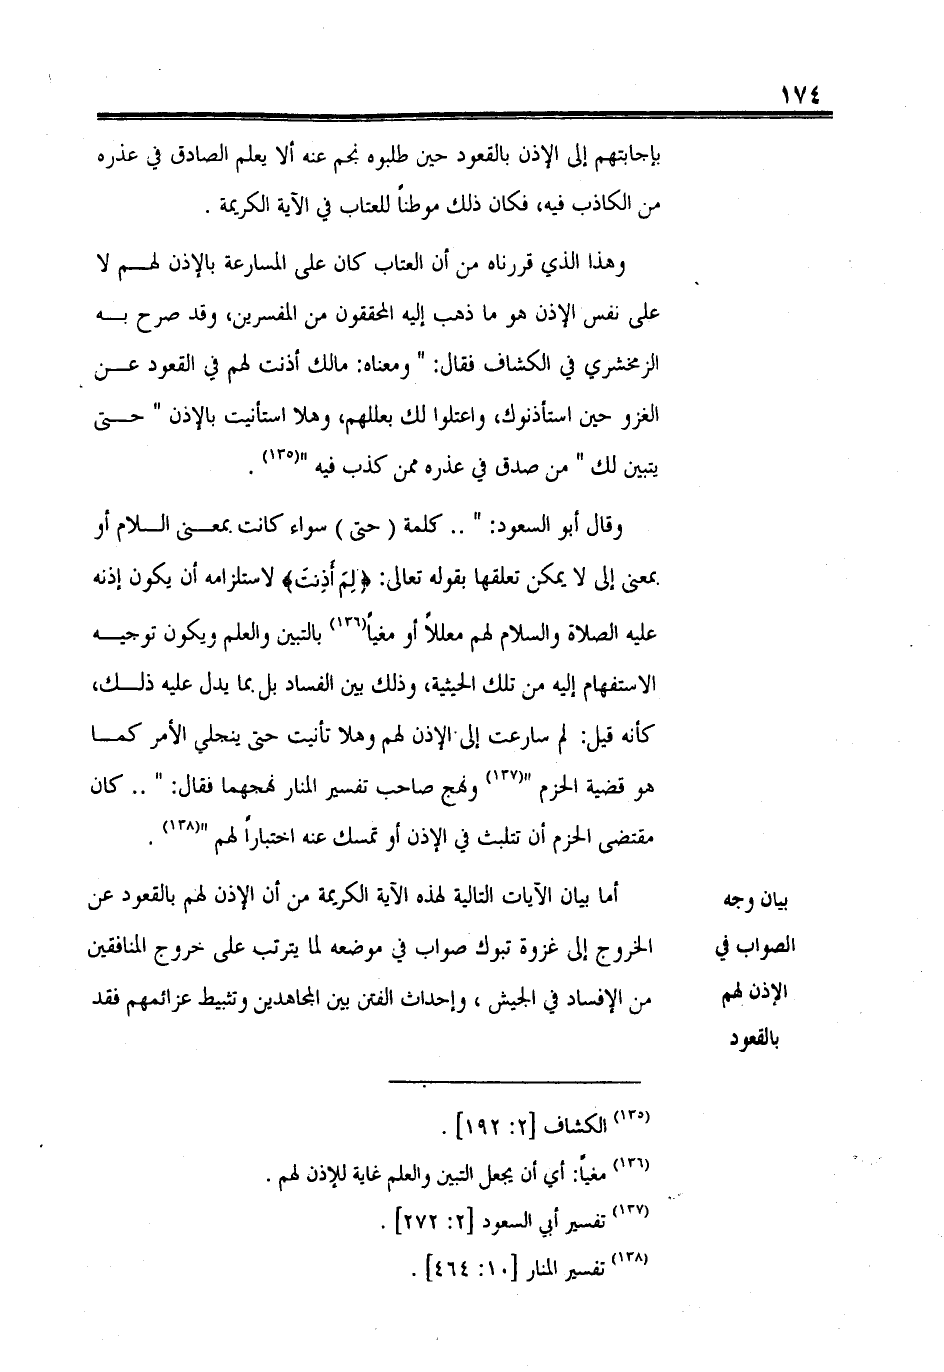 ١٧٤
بإجابتهم إلى الإذن بالقعود حين طلبوه نجم عنه ألا يعلم الصادق في عذره
من الكاذب فيه، فكان ذلك موطناً للعتاب في الآية الكريمة .
وهذا الذي قررناه من أن العتاب كان على المسارعة بالإذن لهم لا
على نفس الإذن هو ما ذهب إليه المحققون من المفسرين، وقد صرح به
الزمخشري في الكشاف فقال: " ومعناه: مالك أذنت لهم في القعود عن
الغزو حين استأذنوك، واعتلوا لك بعللهم، وهلا استأنيت بالإذن " حتى
يتبين لك " من صدق في عذره ممن كذب فيه "(١٣٥) .
وقال أبو السعود: " .. كلمة ( حتى ) سواء كانت بمعنى اللام أو
بمعنى إلى لا يمكن تعلقها بقوله تعالى: ﴿لِمَ أَذِنتَ﴾ لاستلزامه أن يكون إذنه
عليه الصلاة والسلام لهم معللاً أو مغياً(١٣٦) بالتبين والعلم ويكون توجيه
الاستفهام إليه من تلك الحيثية، وذلك بين الفساد بل بما يدل عليه ذلك،
كأنه قيل: لم سارعت إلى الإذن لهم وهلا تأنيت حتى ينجلي الأمر كما
هو قضية الحزم "(١٣٧) ونهج صاحب تفسير المنار نهجهما فقال: " .. كان
مقتضى الحزم أن تتلبث في الإذن أو تمسك عنه اختباراً لهم "(١٣٨) .
أما بيان الآيات التالية لهذه الآية الكريمة من أن الإذن لهم بالقعود عن
الخروج إلى غزوة تبوك صواب في موضعه لما يترتب على خروج المنافقين
من الإفساد في الجيش ، وإحداث الفتن بين المجاهدين وتثبيط عزائمهم فقد
بيان وجه
الصواب في
الإذن لهم
بالقعود
(١٣٥) الكشاف [٢: ١٩٢] .
(١٣٦) مغياً: أي أن يجعل التبين والعلم غاية للإذن لهم .
(١٣٧) تفسير أبي السعود [٢: ٢٧٢] .
(١٣٨) تفسير المنار [١٠: ٤٦٤] .